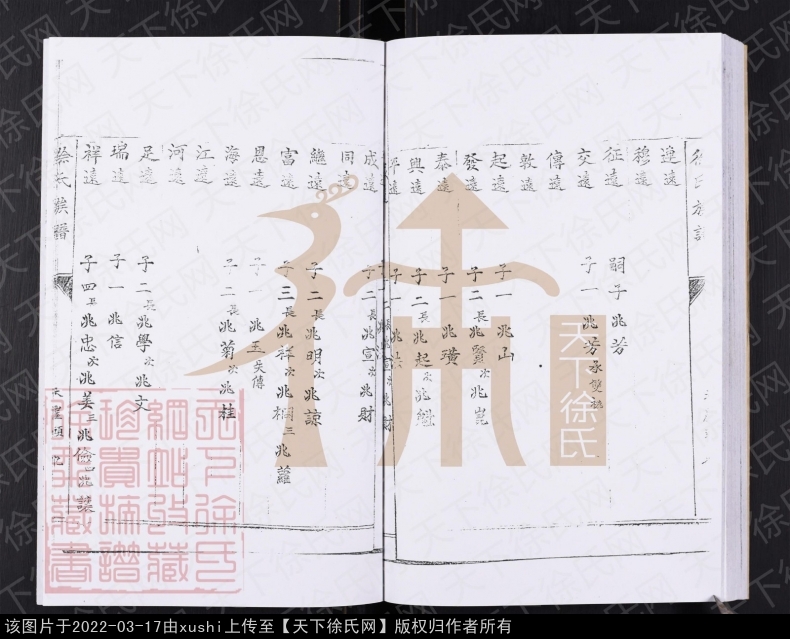 徐氏族譜
遠
穆遠
征遠 嗣子兆芳
交遠 子一兆芳承雙祧
傳遠
敦遠
起遠 子一兆山
發遠 子二長兆賢次兆崑
泰遠 子一兆璜
興遠 子二長兆起次兆
平遠 子一兆
成遠 子二長兆宣次兆財
同遠
繼遠 子二長兆明次兆諒
富遠 子三長兆祥次兆桐三兆蘿
恩遠 子一兆玉失傳
海遠 子二長兆菊次兆桂
江遠
河遠
足遠 子二長兆學次兆文
瑞遠 子一兆信
祥遠 子四長兆忠次兆姜三兆 四兆讓
徐氏族譜
天下徐氏
天下徐氏網
珍貴 譜
徐 藏書
天下徐氏网
该图片于2022-03-17由xushi上传至【天下徐氏网】版权归作者所有